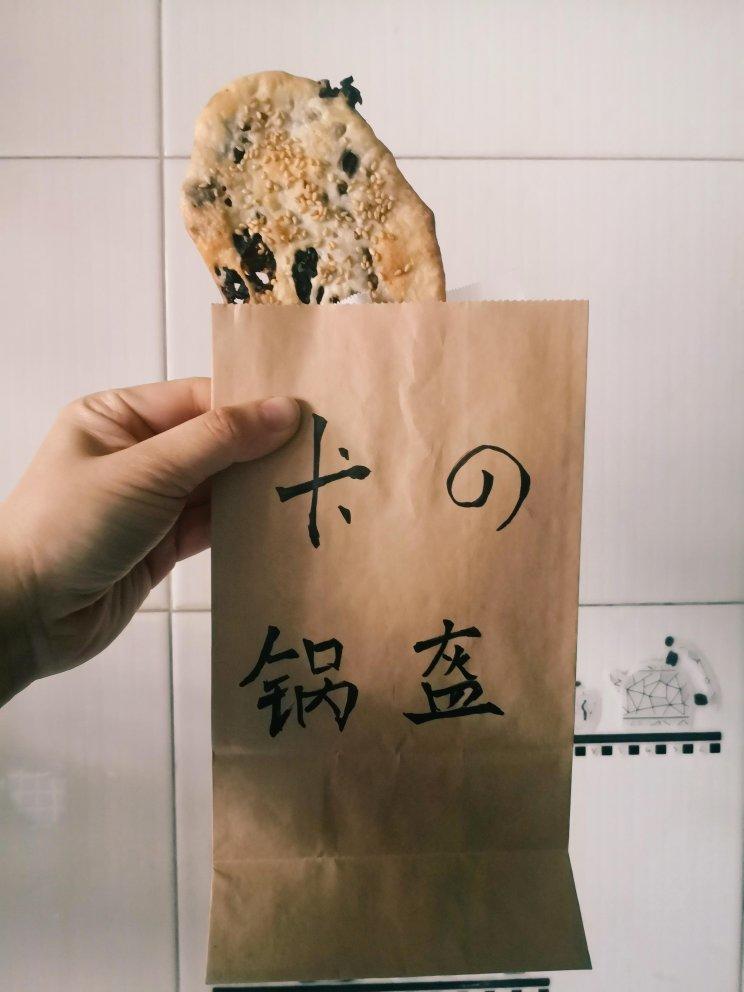 卡の
锅盔